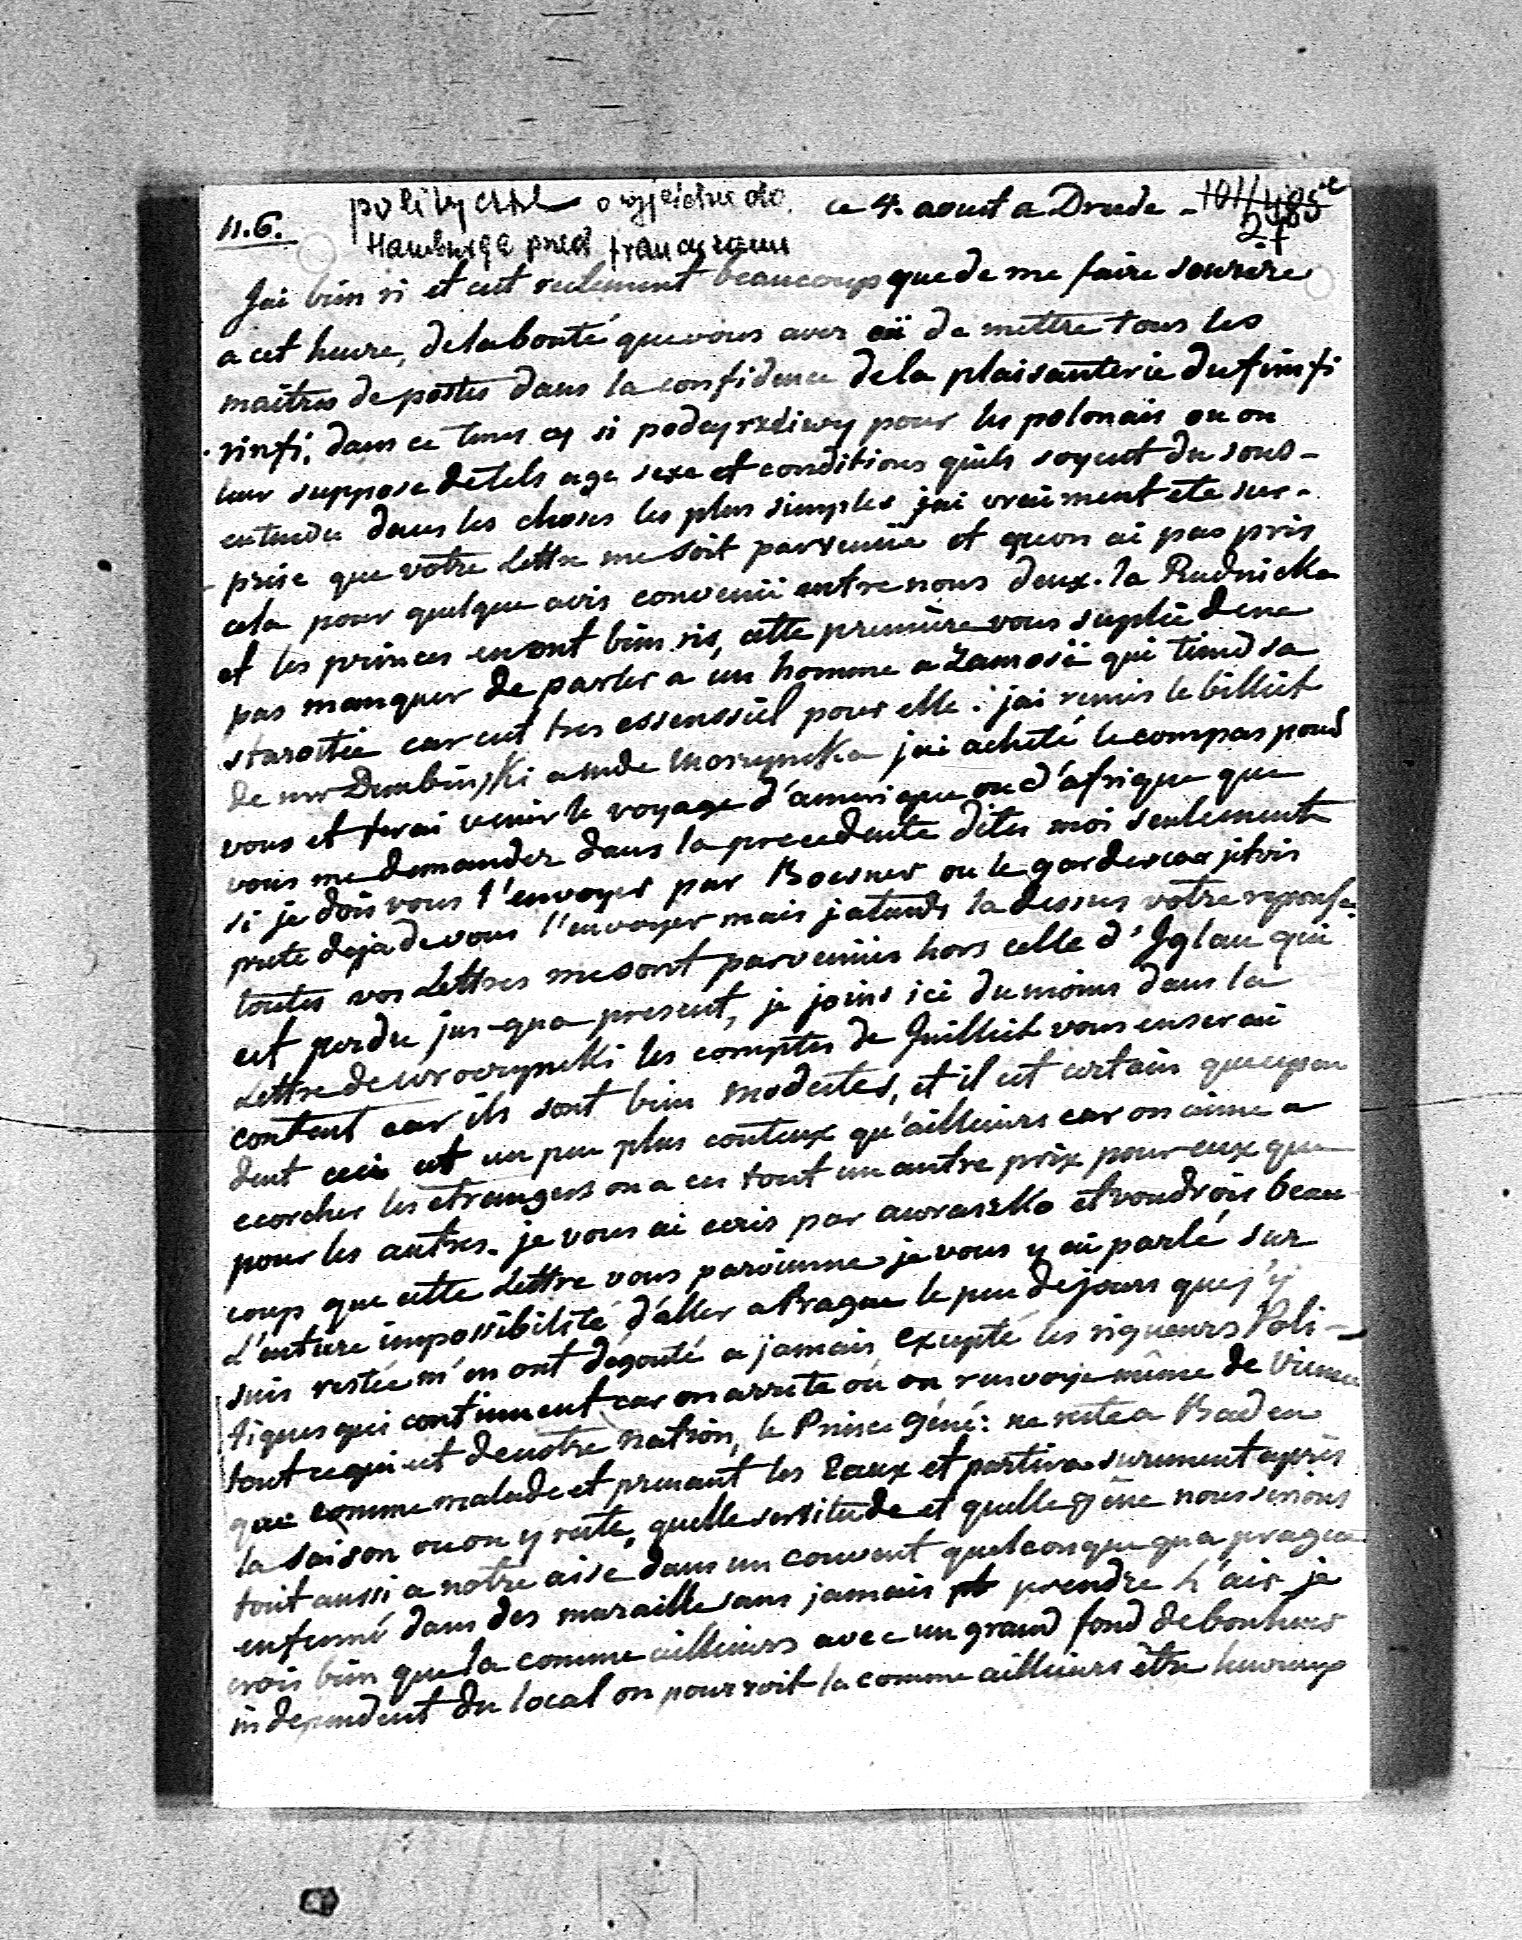 11.6.
polityczne o wyjeździe do
Hamburga przed francuzami
ce 4. aoust a Dresde -
Jai bien ri et cest reelement beaucoup que de me faire sourire
a cet heure, de la bonté que vous avez eü de mettre tous les
maitres de postes dans la confidence de la plaisanterie du finfi
rinfi, dans ce tems cy si podeyrzliwy pour les polonais ou on
leur suppose de tels age sexe et conditions quils soyent du sous-
entendu dans les choses les plus simples jai vraiment ete sur-
prise que votre Lettre me soit parvenüe et quon ai pas pris
cela pour quelque avis convenü entre nous deux. la Rudnicka
et les princes en ont bien ris, cette premiere vous suplie de ne
pas manquer de parler a un homme a Zamosc qui tiend sa
starostie car cest tres essenssiel pour elle: jai remis le billiet
de mr Dembinski a mde Moszynska jai acheté le compas pour
vous et ferai venir le voyage d'amerique ou d'afrique que
vous me demandez dans la precedente dites moi seulement
si je dois vous l'envoyer par Boesner ou le garder car jetois
prete deja de vous l'envoyer mais jatends la dessus votre reponse.
toutes vos Lettres me sont parvenües hors celle d'Iglau qui
est perdue jus-qua present, je joins ici du moins dans la
Lettre de wroczynski les comptes de Juilliet vous en serai
content car ils sont bien modestes, et il est certain que cepen
dent ceci est un peu plus couteux qu'ailleiurs car on aime a
ecorcher les etrangers on a eu tout un autre prix pour eux que
pour les autres. je vous ai ecris par awraszko et voudrois beau
coup que cette Lettre vous parvienne je vous y ai parlé sur
L'entiere impossibilité d'aller a Prague le peu de jours que j'y
suis restée m'en ont dégouté a jamais excepté les rigueurs Poli-
tiques qui continuent car on arrete ou on renvoye même de Vienne
tout ce qui est de notre nation, le Prince Géné: ne reste a Baden
que comme malade et prenant les Eaux et partira surement après
la saison ou on y reste, quelle servitude et quelle gêne nous serions
tout aussi a notre aise dans un couvent quelconque qu a prague
enfermé dans des muraille sans jamais prendre l'air je
crois bien que la comme ailleiurs avec un grand fond de bonheur
independent du local on pourroit la comme ailleiurs être heureux